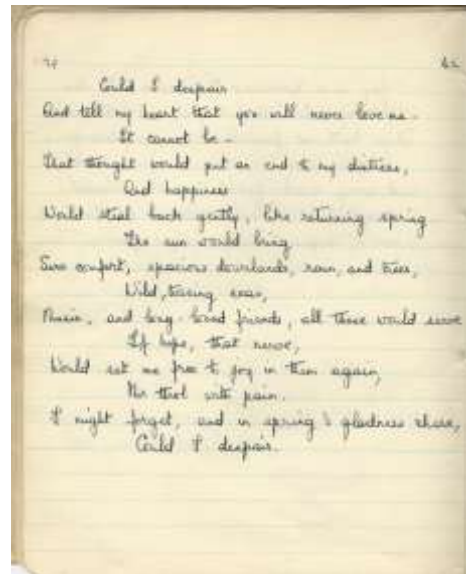 Could I despair
And tell my heart that you will never love me -
It cannot be -
That thought would put an end to my distress,
And happiness
Would steal back gently, like returning spring
The sun would bring
Sure comfort, spacious downlands, rain, and trees,
Wild, seas,
Music, and long-loved friends, all these would serve
If hope, that nerve,
Would set me free to joy in them again,
Nor thrill with pain.
I might forget, and in spring's gladness share,
Could I despair.